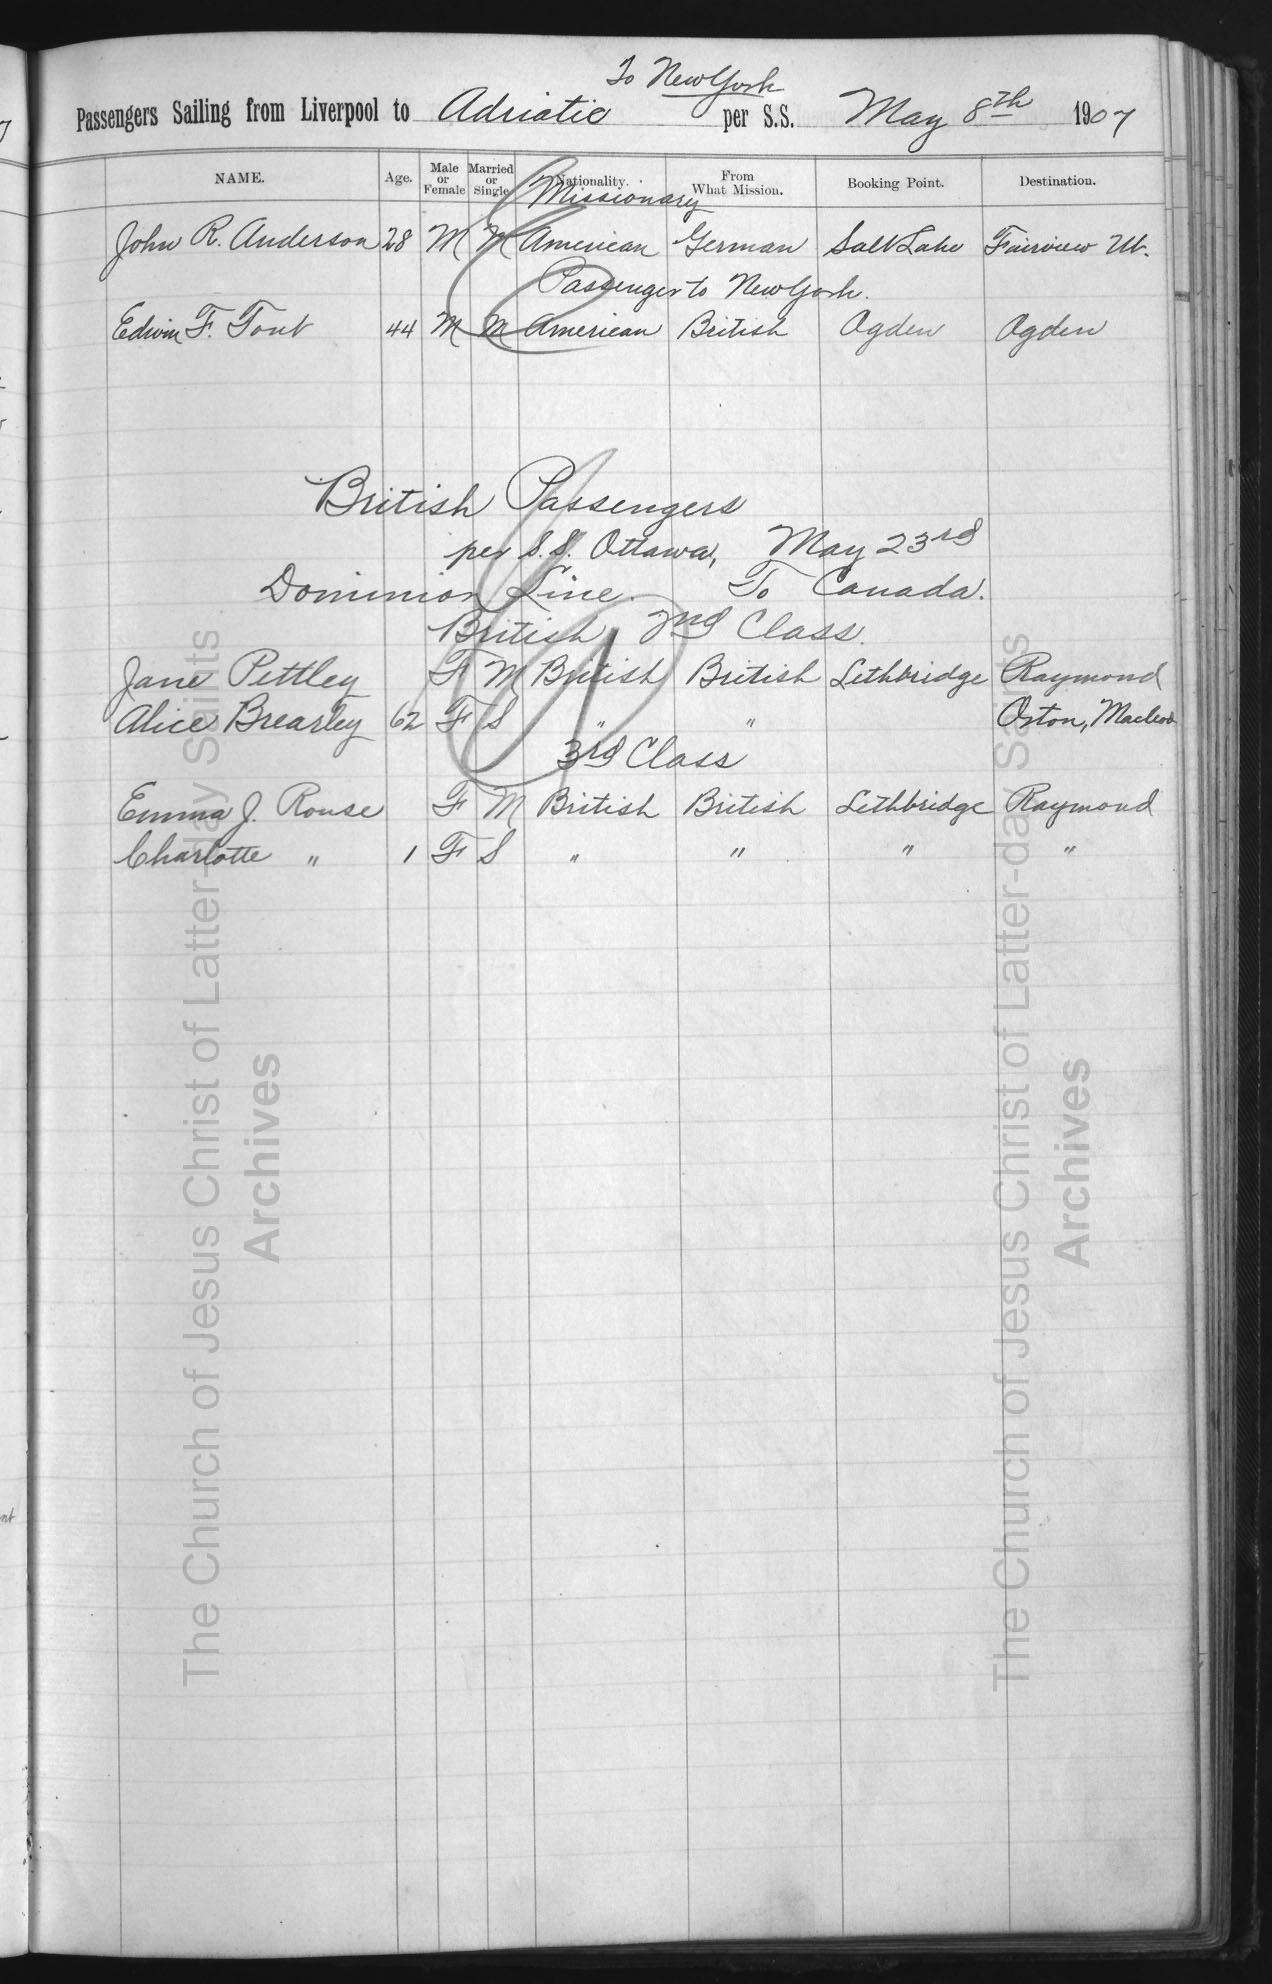 To New York
Passengers Sailing from Liverpool to Adriatic per S.S. May 8th 1907
NAME. Age. Male or Female Married or Single Nationality. From What Mission. Booking Point. Destination.
Missionary
John R. Anderson 28 M M American German Salt Lake Fairview Ut.
Passenger to New York.
Edwin F. Tout 44 M M American British Ogden Ogden
British Passengers
per S.S. Ottawa, May 23rd
Dominion Line. To Canada.
British 2nd Class.
Jane Pettley F M British British Lethbridge Raymond
Alice Brearley 62 F S " " Orton, Macleod
3rd Class
Emma J. Rouse F M British British Lethbridge Raymond
Charlotte " 1 F S " " " "
The Church of Jesus Christ of Latter-day Saints
Archives
The Church of Jesus Christ of Latter-day Saints
Archives